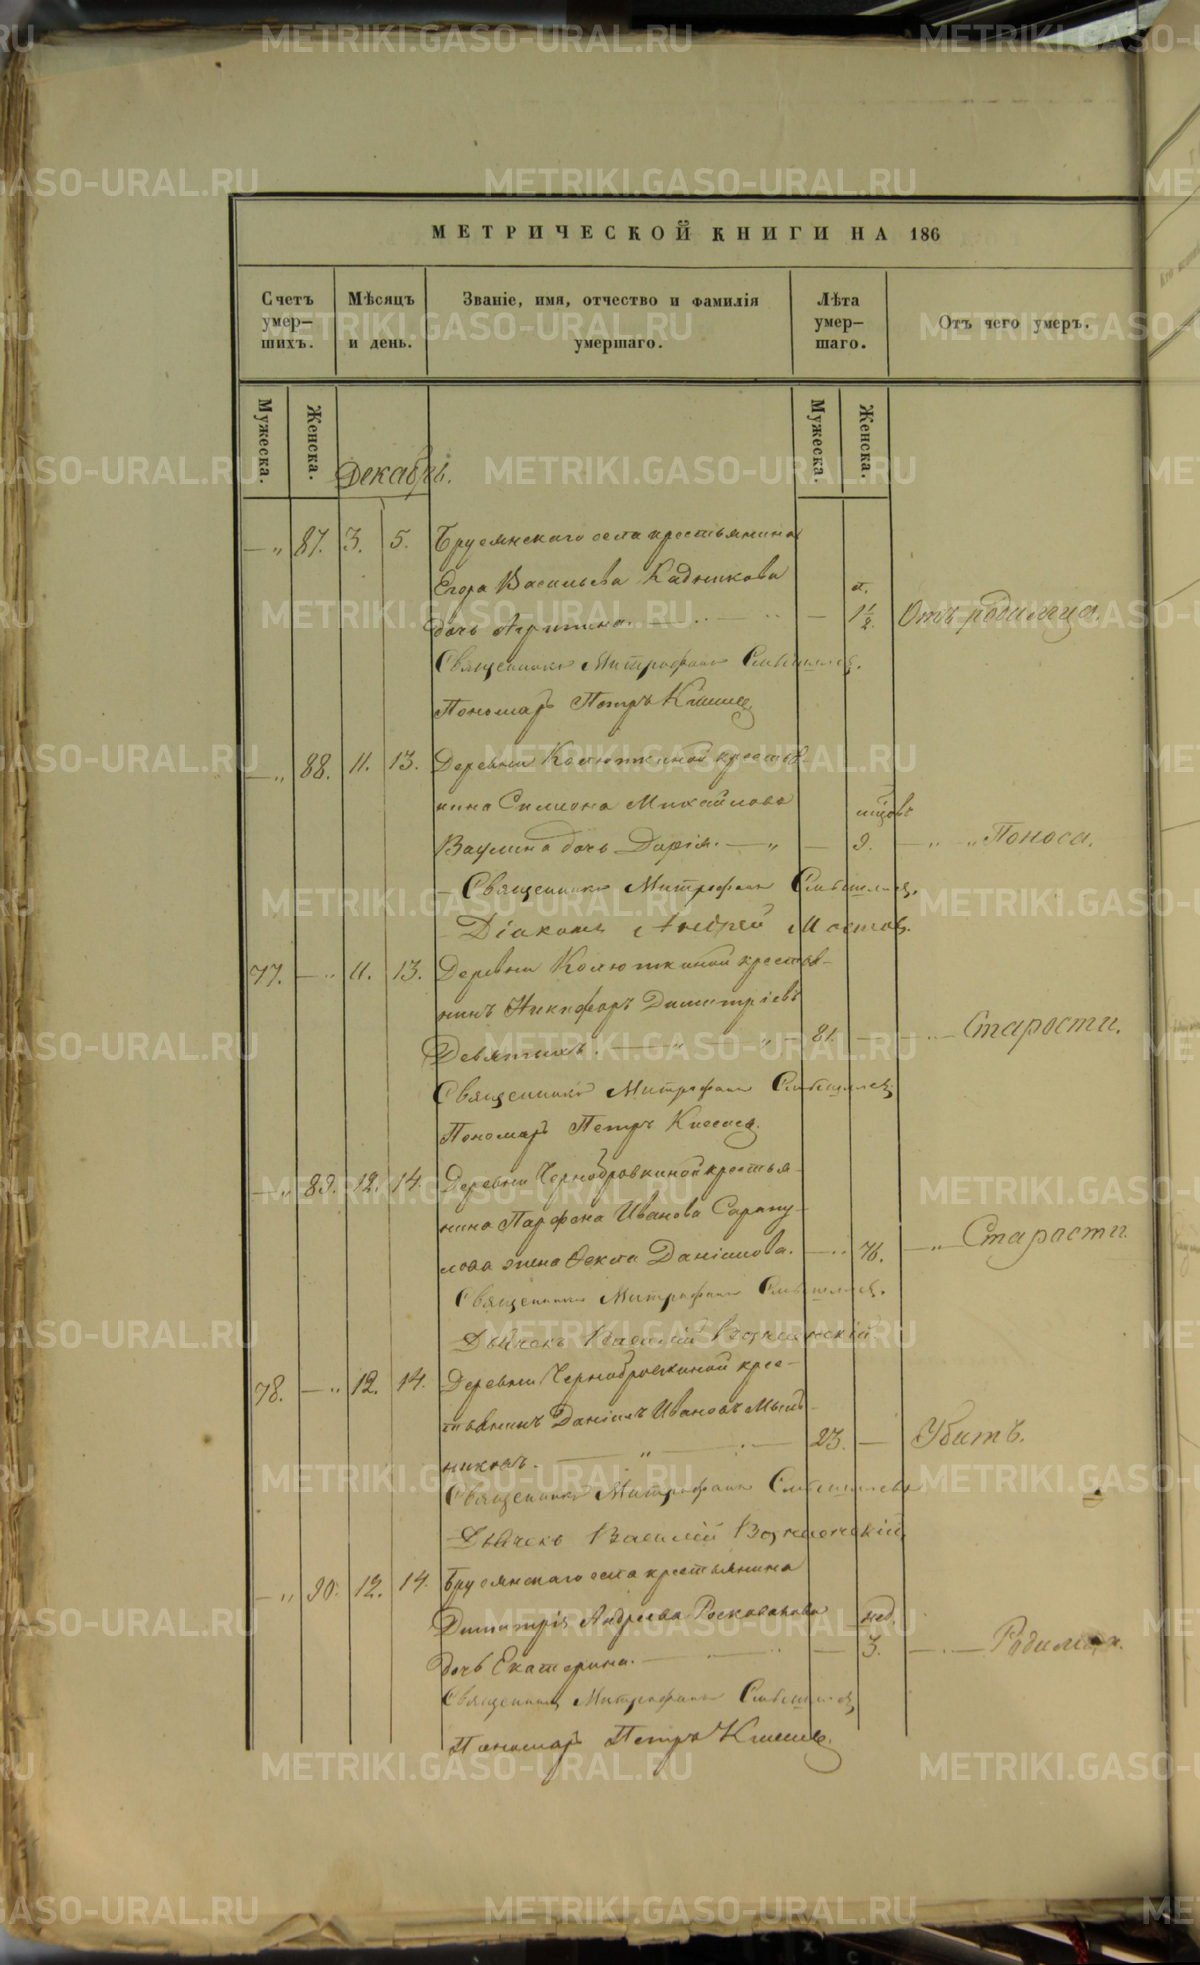 METRIKI.GASO-URAL.RU
МЕТРИЧЕСКОЙ КНИГИ НА 186
Счетъ умер-шихъ.
Мѣсяцъ и день.
Званіе, имя, отчество и фамилія умершаго.
Лѣта умер-шаго.
Отъ чего умеръ.
Мужеска. Женска. Мужеска. Женска.
Декабрь.
— „ 87. 3. 5. Бруснянскаго села крестьянина
Егора Васильева Кадникова
дочь Агрипина. — 1½. Отъ родимца.
Священникъ Митрофанъ
Пономарь Петръ
— „ 88. 11. 13. Деревни Колюткиной крестья-
нина Симиона Михайлова мцовъ
Ваулина дочь Дарія. — „ — 9. — „ „ Поноса.
— Священникъ Митрофанъ
Діаконъ Андрей
77. — „ 11. 13. Деревни Колюткиной крестья-
нинъ Никифоръ Димитріевъ
Девятыхъ. — „ — „ — 81. — Старости.
Священникъ Митрофанъ
Пономарь Петръ
— „ 89. 12. 14. Деревни Чернобровкиной крестья-
нина Парфена Иванова Сарапу-
лова жена Ѳекла Даніилова. — „ 76. — „ — Старости.
Священникъ Митрофанъ
Дьячекъ Василій Вознесенскій.
78. — „ 12. 14. Деревни Чернобровкиной крес-
тьянинъ Даніилъ Ивановъ Мыль-
никовъ. — „ — 23. — Убитъ.
Священникъ Митрофанъ
Дьячекъ Василій Вознесенскій
— „ 90. 12. 14. Бруснянскаго села крестьянина
Димитрія Андреева нед.
дочь Екатерина. — 3. — Родимца.
Священникъ Митрофанъ
Пономарь Петръ